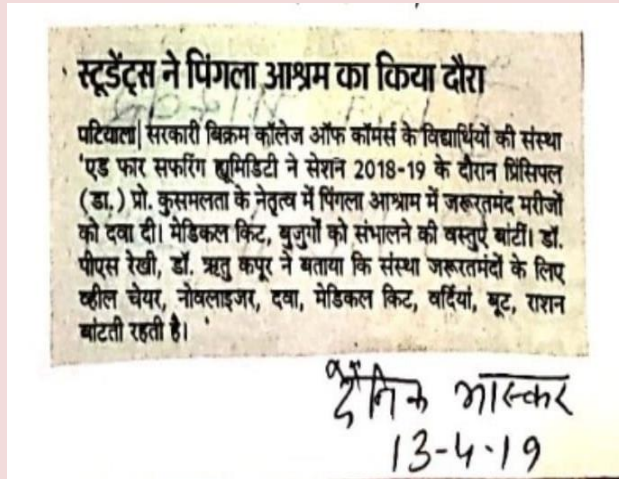 स्टूडेंट्स ने पिंगला आश्रम का किया दौरा
पटियाला| सरकारी बिक्रम कॉलेज ऑफ कॉमर्स के विद्यार्थियों की संस्था
'एड फार सफरिंग ह्यूमिडिटी ने सेशन 2018-19 के दौरान प्रिंसिपल
(डा.) प्रो. कुसमलता के नेतृत्व में पिंगला आश्राम में जरूरतमंद मरीजों
को दवा दी। मेडिकल किट, बुजुर्गो को संभालने की वस्तुएं बांटीं। डॉ.
पीएस रेखी, डॉ. ऋतु कपूर ने बताया कि संस्था जरूरतमंदों के लिए
व्हील चेयर, नोवलाइजर, दवा, मेडिकल किट, वर्दियां, बूट, राशन
बांटती रहती है।
दैनिक भास्कर
13-4-19